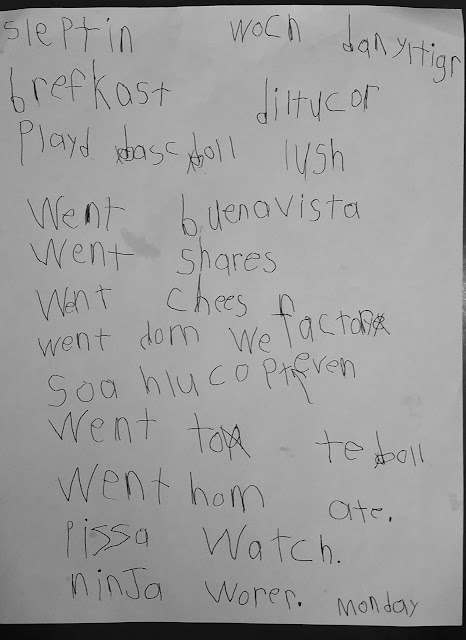 sleptin woch danyltigr
brefkast diltucor
Playd bascboll lush
Went buenavista
Went shares
Went chees
went dom We factory
Soa hlucoptreven
Went to te boll
Went hom ate.
Pissa Watch.
ninJa worer. Monday